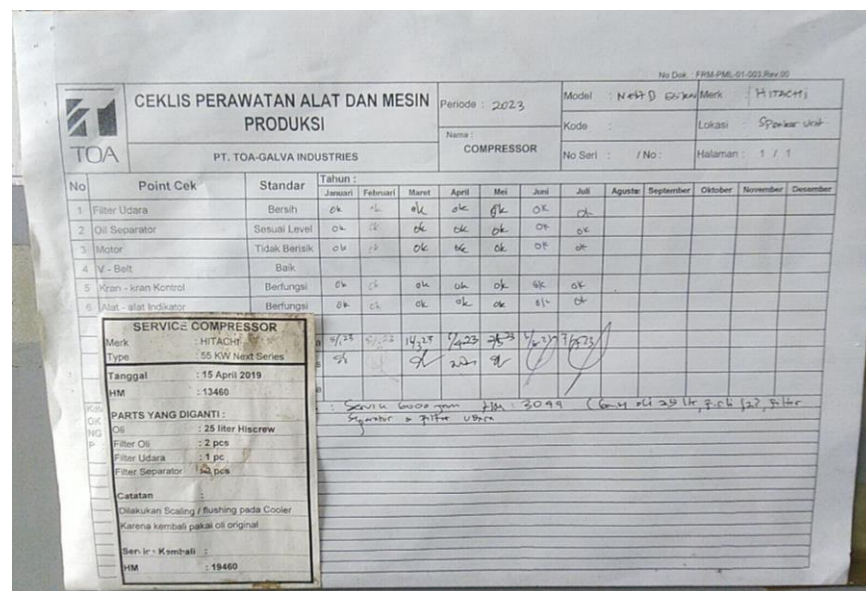 No Dok. : FRM-PML-01-003.Rev.00
TOA
CEKLIS PERAWATAN ALAT DAN MESIN PRODUKSI
PT. TOA-GALVA INDUSTRIES
Periode : 2023
Nama :
COMPRESSOR
Model :
Merk : HITACHI
Kode :
Lokasi : Speaker Unit
No Seri : / No :
Halaman : 1 / 1
No Point Cek Standar Tahun :
Januari Februari Maret April Mei Juni Juli Agustus September Oktober November Desember
1 Filter Udara Bersih ok ok ok ok ok ok ok
2 Oil Separator Sesuai Level ok ok ok ok ok ok ok
3 Motor Tidak Berisik ok ok ok ok ok ok ok
4 V - Belt Baik
5 Kran - kran Kontrol Berfungsi ok ok ok ok ok ok ok
6 Alat - alat Indikator Berfungsi ok ok ok ok ok ok ok
: Servis 6000 HM : 3099
Separator + Filter udara
SERVICE COMPRESSOR
Merk : HITACHI
Type : 55 KW Next Series
Tanggal : 15 April 2019
HM : 13460
PARTS YANG DIGANTI :
Oli : 25 liter Hiscrew
Filter Oli : 2 pcs
Filter Udara : 1 pc
Filter Separator : pcs
Catatan :
Dilakukan Scaling / flushing pada Cooler
Karena kembali pakai oli original
Servis Kembali :
HM : 19460